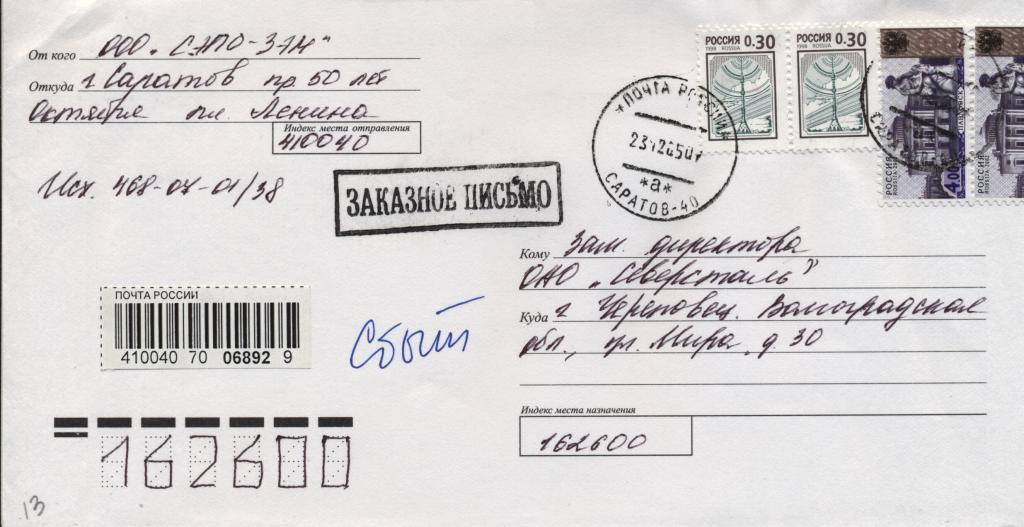 От кого ООО "СЭПО-ЗЭМ"
Откуда г Саратов пр. 50 лет
Октября пл. Ленина
Индекс места отправления
410040
Исх. 468-07-01/38
ЗАКАЗНОЕ ПИСЬМО
РОССИЯ 0.30
1998 ROSSIJA
РОССИЯ 0.30
1998 ROSSIJA
*ПОЧТА РОССИИ
23120507
*а*
САРАТОВ-40
4.00
РОССИЯ
РОССИЯ
Кому Зам. директора
ОАО "Северсталь"
Куда г Череповец. Волгоградская
обл., ул. Мира, д. 30
Индекс места назначения
162600
ПОЧТА РОССИИ
410040 70 06892 9
Сбыт
162600
13